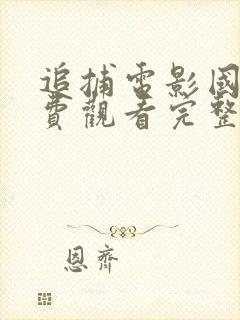 追捕電影國
費觀看完整
恩齊